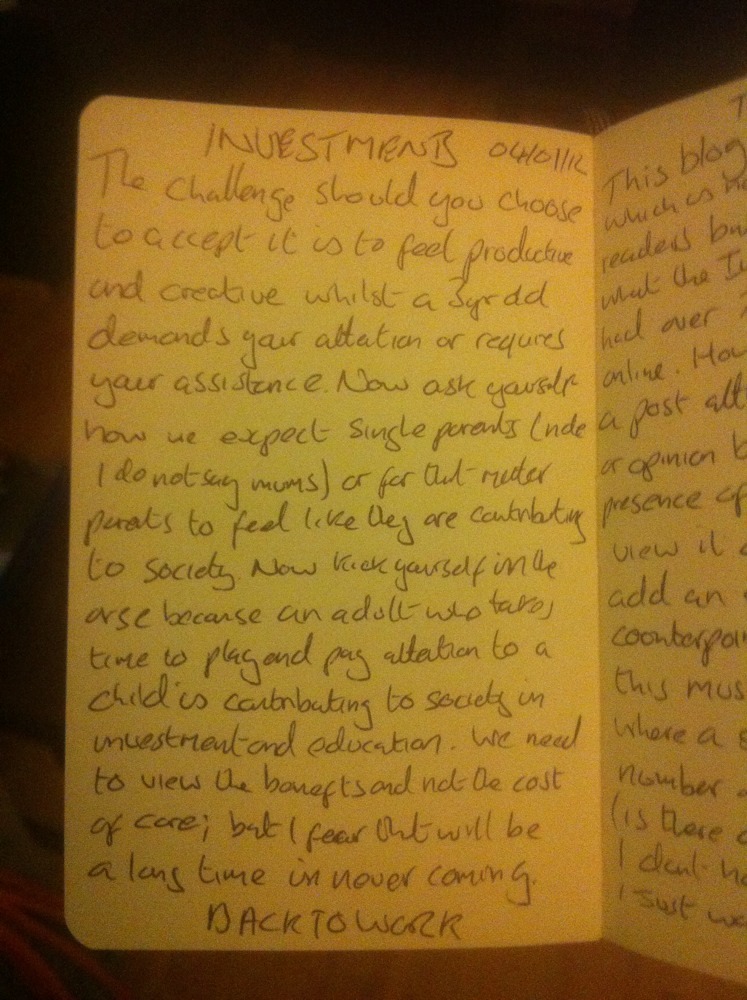 INVESTMENTS 04/01/12
The challenge should you choose
to accept it is to feel productive
and creative whilst a 3yr old
demands your attention or requires
your assistance. Now ask yourself
how we expect single parents (note
I do not say mums) or for that matter
parents to feel like they are contributing
to society. Now kick yourself in the
arse because an adult who takes
time to play and pay attention to a
child is contributing to society in
investment and education. We need
to view the benefits and not the cost
of care; but I fear that will be
a long time in never coming.
BACK TO WORK
This blog
which is
readers
what the
had over
online.
a post
or opinion
presence of
view it
add an
counterpoin
this mus
where a
number
(is there
I don't
I just